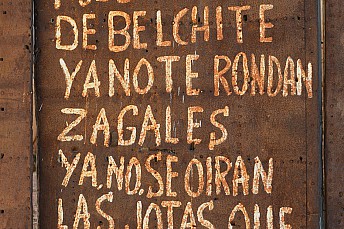 DE BELCHITE
YA NO TE RONDAN
ZAGALES
YA. NO. SE OIRAN
LAS JOTAS QUE